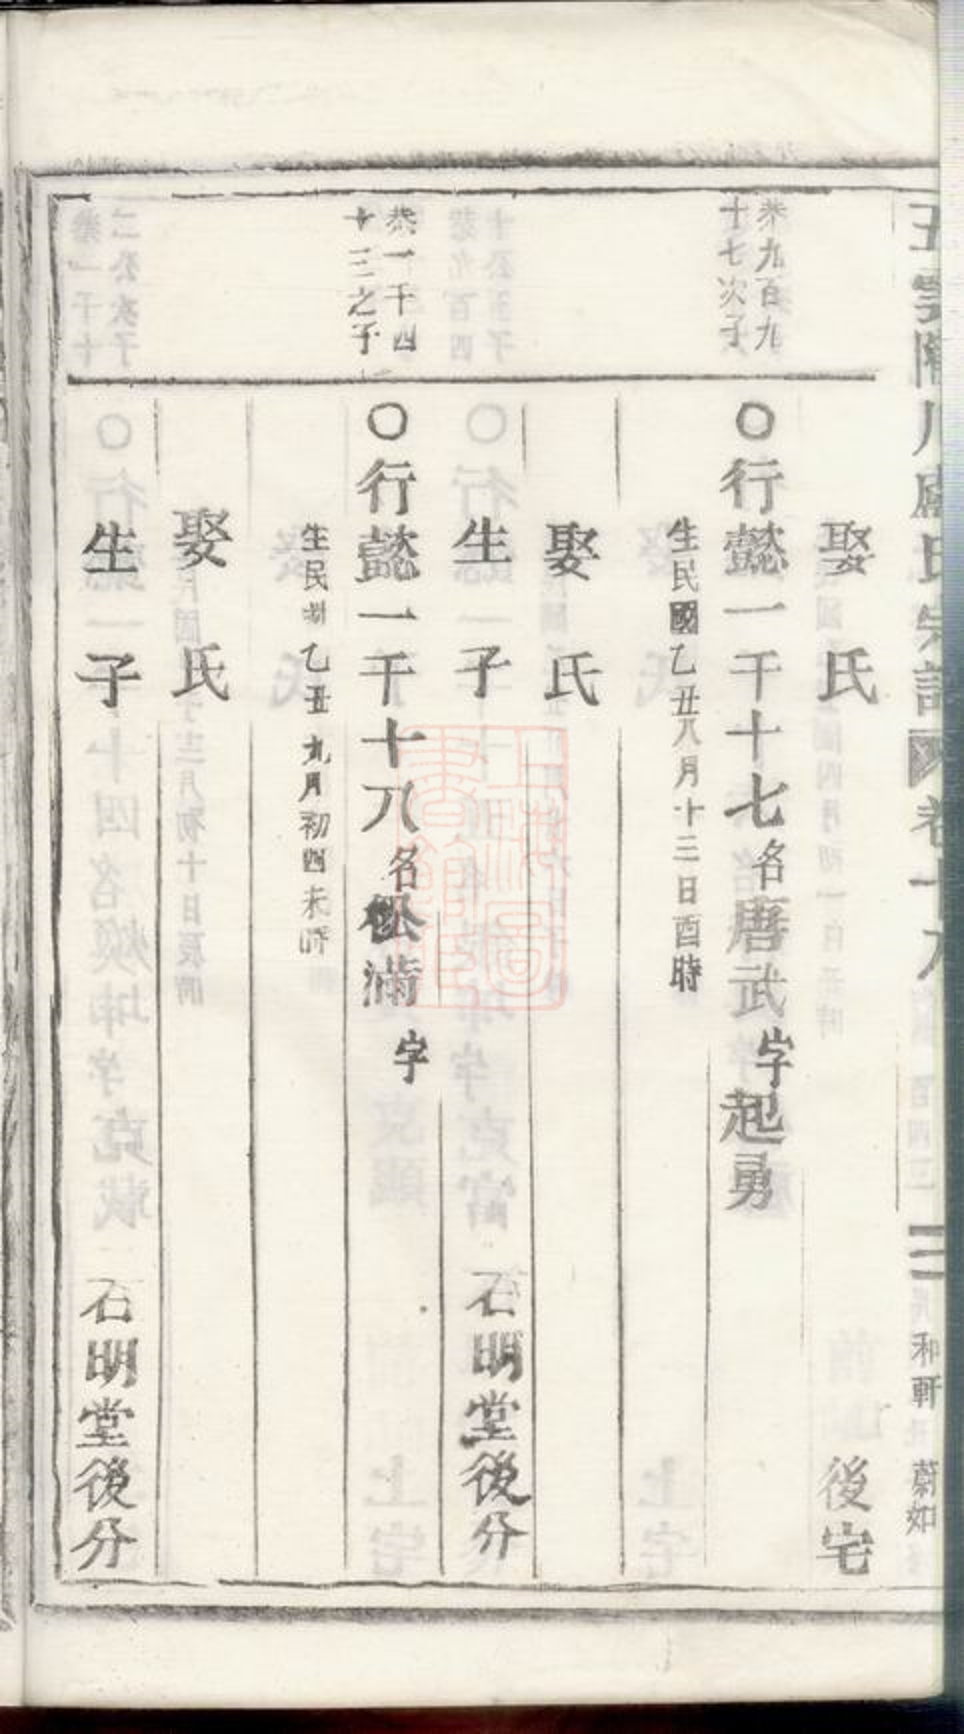 娶氏 後宅
恭九百九
十七次子
○行懿一千十七名唐武字起勇
生民國乙丑八月十三日酉時
娶氏
生子 石明堂後分
恭一千四
十三之子
○行懿一千十八名松滿字
生民國乙丑九月初四未時
娶氏
生子 石明堂後分